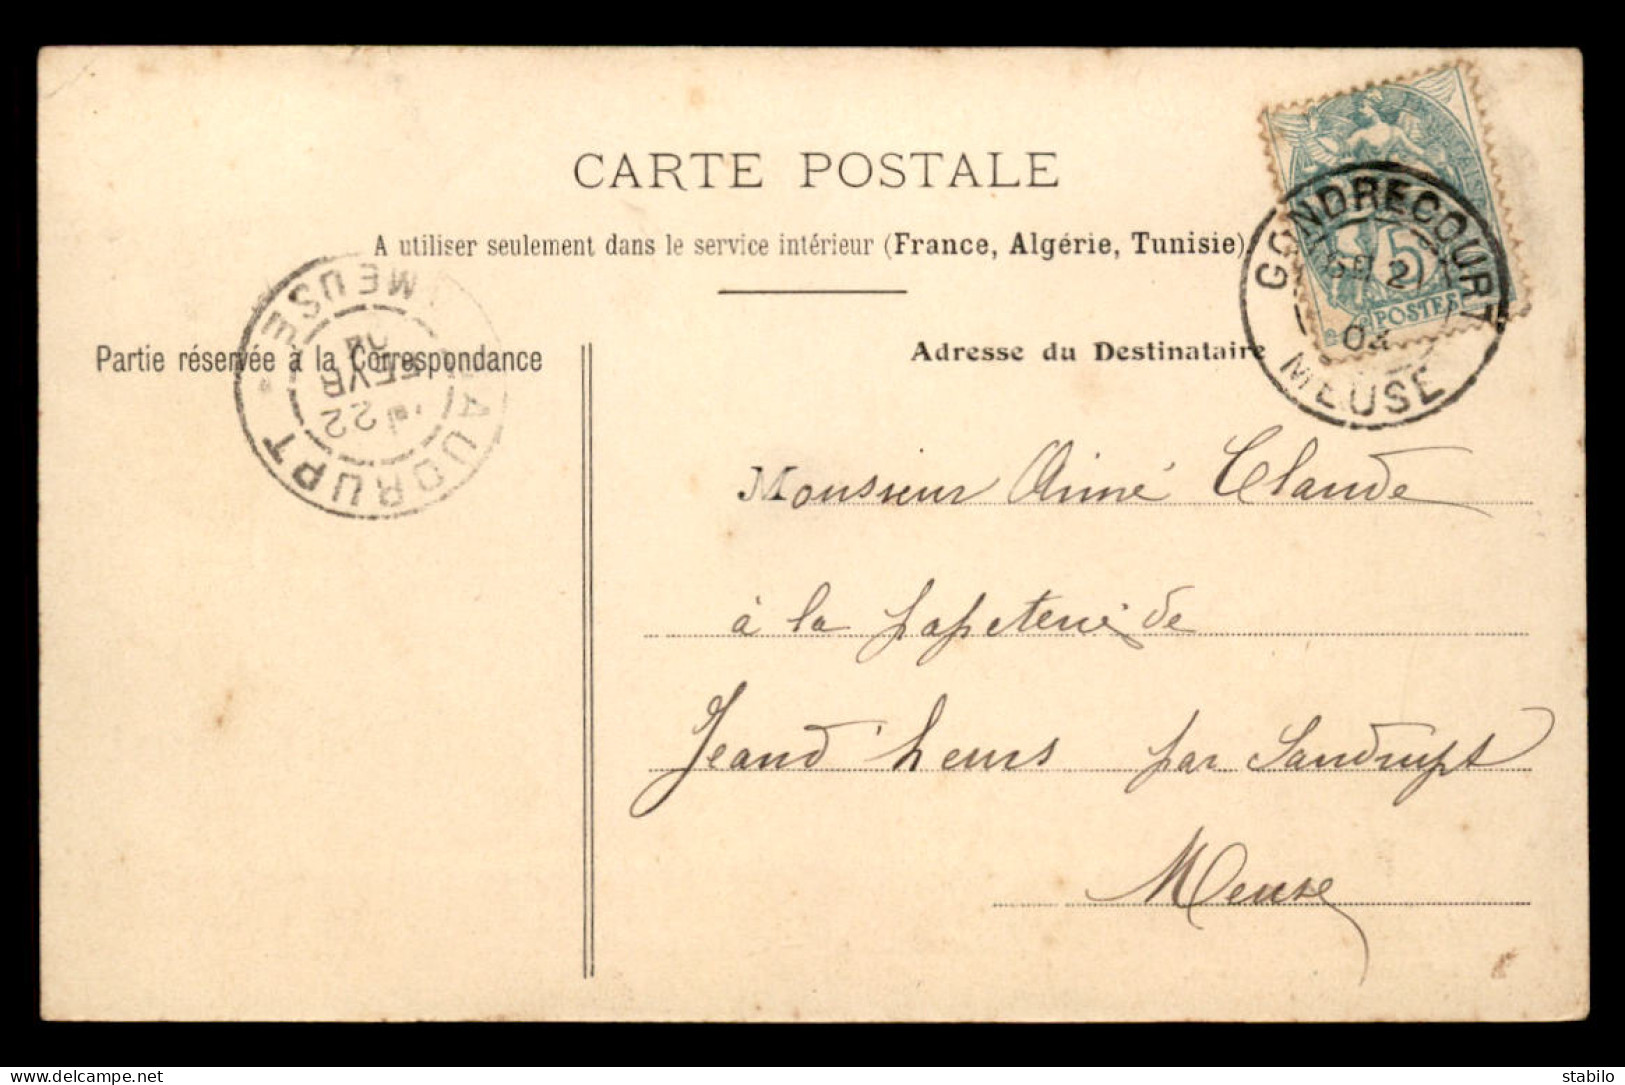 CARTE POSTALE
A utiliser seulement dans le service intérieur (France, Algérie, Tunisie)
Partie réservée à la Correspondance
Adresse du Destinataire
GONDRECOURT
21
04
MEUSE
5
POSTES
MEUSE
22
04
AUDRUPT
Monsieur Aimé Claude
à la papeterie de
Jeand'heurs par Saudrupt
Meuse
delcampe.net
stabilo